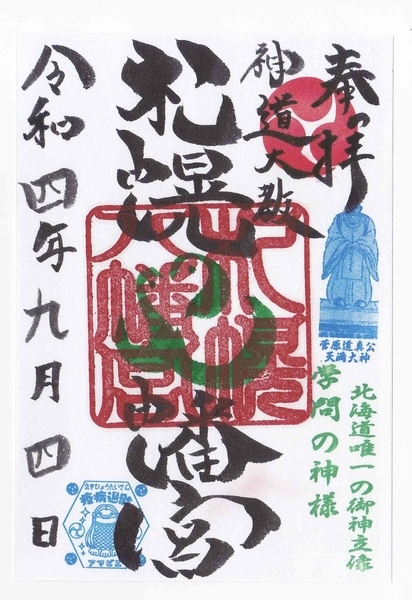 奉拝
神道大教
札幌八幡宮
令和四年九月四日
札幌
八幡宮
菅原道真公
天満大神
北海道唯一の御神立像
学問の神様
えきびょうたいさん
疫病退散
アマビエ